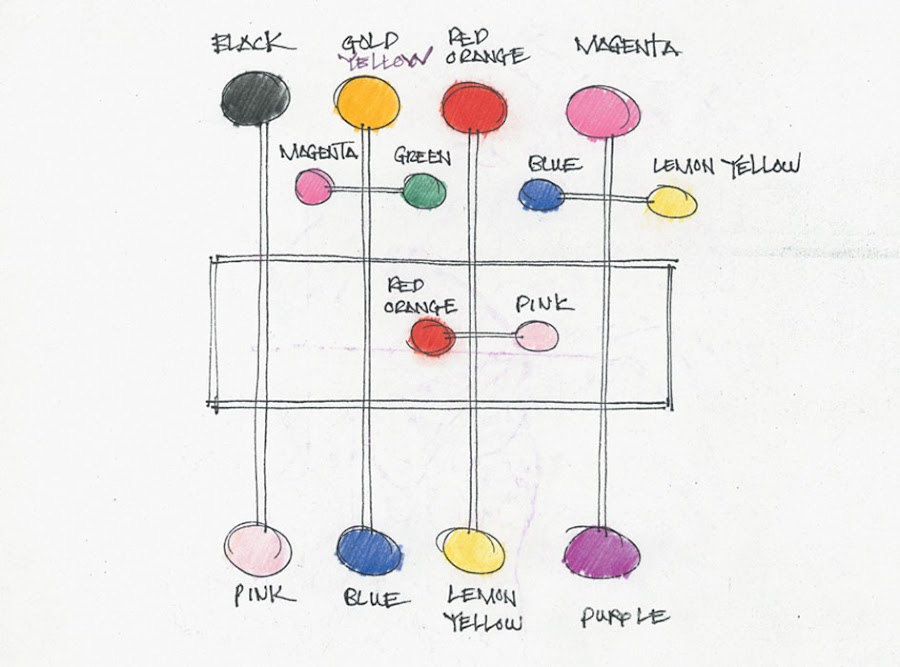 BLACK
GOLD
YELLOW
RED
ORANGE
MAGENTA
MAGENTA
GREEN
BLUE
LEMON YELLOW
RED
ORANGE
PINK
PINK
BLUE
LEMON
YELLOW
PURPLE